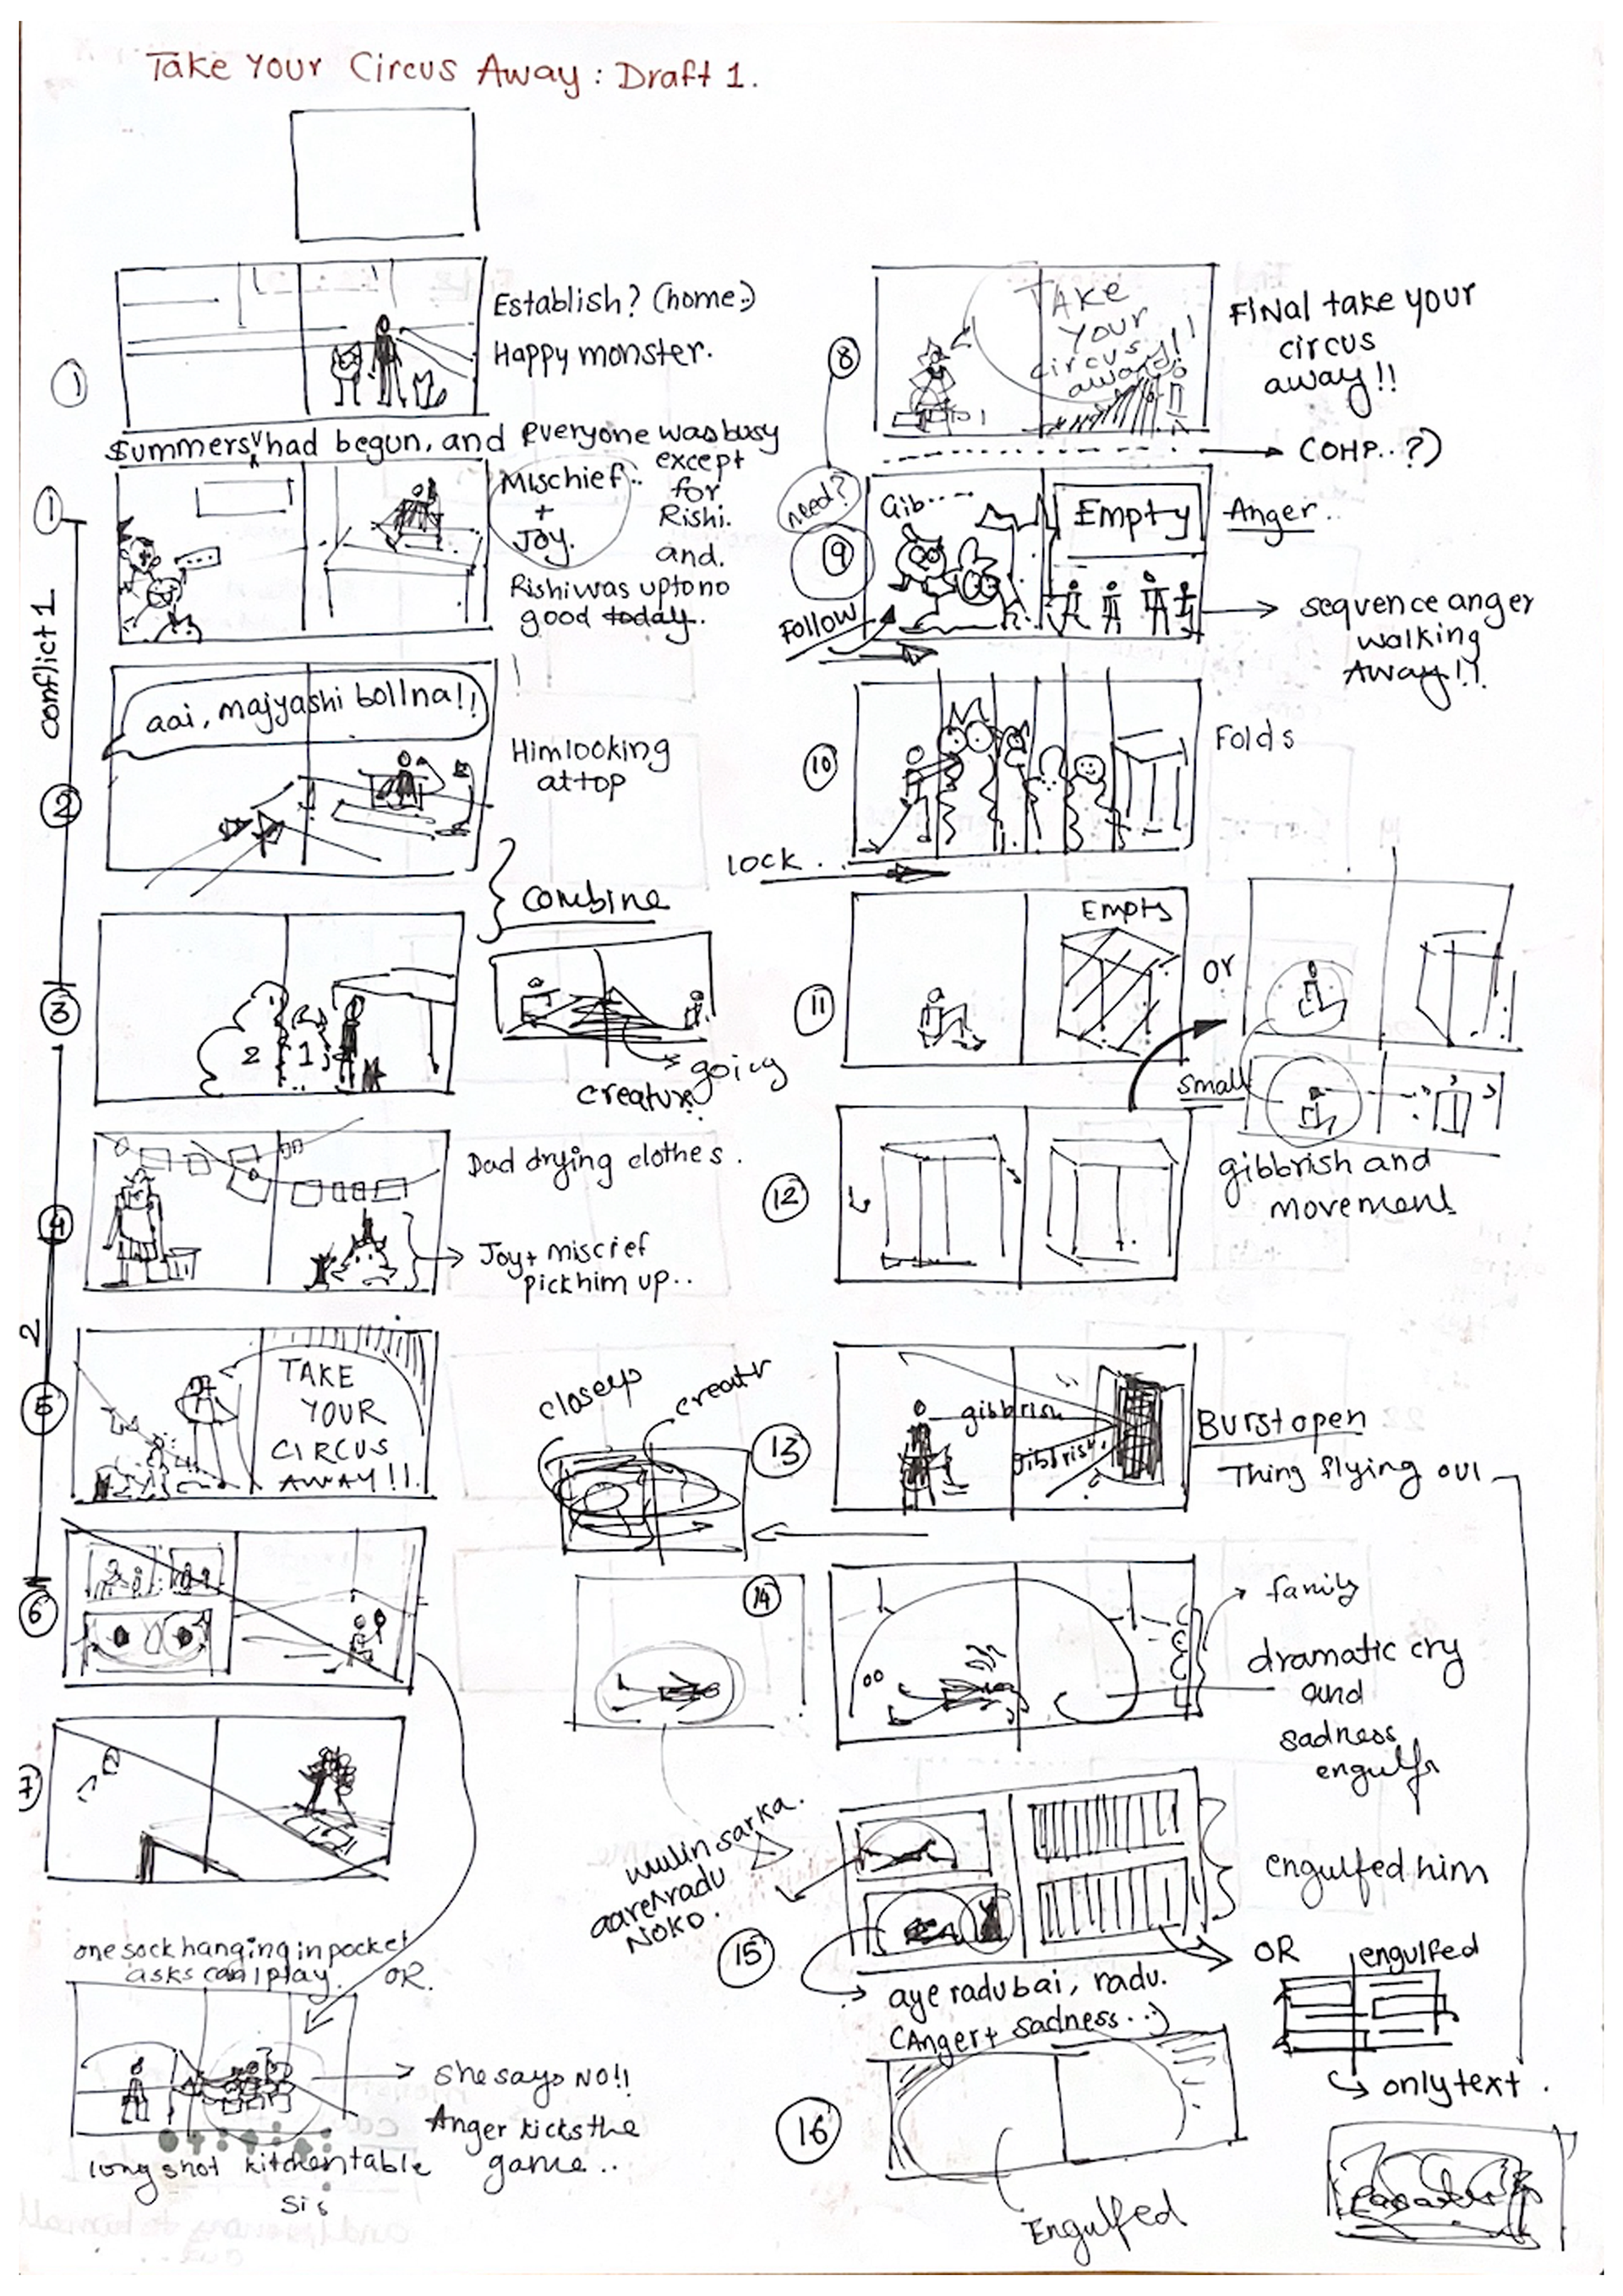 Take Your Circus Away : Draft 1.
1
Establish? (home:)
Happy monster.
Summers had begun, and everyone was busy
except
for
Rishi.
and.
Rishi was up to no
good today..
1
Mischief..
+
Joy.
conflict 1
aai, majyashi bollna!!
2
Him looking
at top
Combine
3
2
1
going
creature
4
Dad drying clothes.
Joy + miscief
pick him up..
2
5
TAKE
YOUR
CIRCUS
AWAY!!
6
7
one sock hanging in pocket
asks can I play.
OR.
she says NO!!
Anger kicks the
game..
long shot kitchen table
sis
8
TAKE
YOUR
circus
away!!
FINAL take your
circus
away!!
COMP..?)
need?
9
Gib.....
Empty
Anger..
Follow
sequence anger
walking
Away!!
10
Folds
lock.
11
Empty
or
small
12
gibbrish and
movement
closeup
creatr
13
gibbrish
gibbrish
Burst open
Thing flying out
14
family
dramatic cry
and
sadness
engulfs
mulin sarka
aare radu
NOKO.
15
engulfed him
aye radubai, radu.
(Anger + sadness..)
OR
engulfed
only text.
16
Engulfed